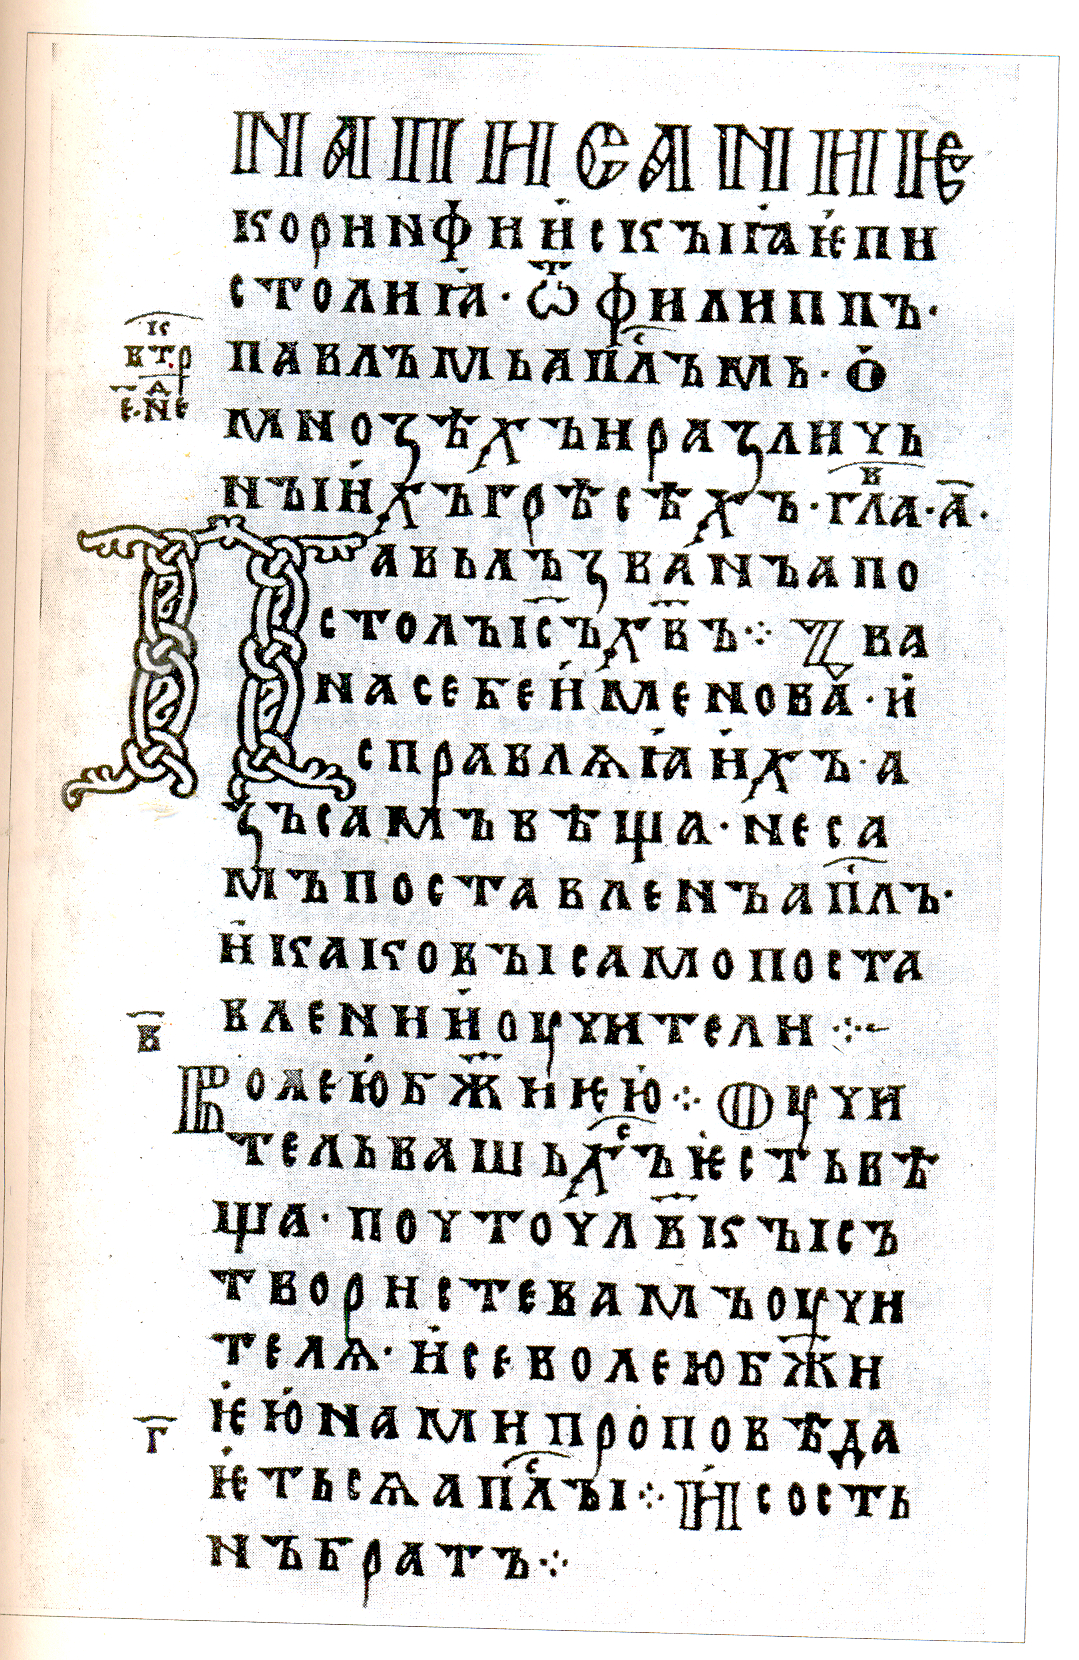 НАПИСАНИѤ
коринфийскъіꙗѥпи
столиꙗ · ѿ филиппъ ·
к҃
втр
д҃
е҃ · не
павлъмь ап҃с҃лъмь · о
мноꙁѣхъ и раꙁличь
нъіихъ грѣсѣхъ · гла҃в · а҃ ·
Павьлъ ꙁванъ апо
столъ іс҃ъ хв҃ъ ⁘ Ꙁва
на себе именова · и
справлѧꙗ ихъ · а
ꙁъ самъ вѣща · не са
мъ поставленъ ап҃с҃лъ ·
и каковъі самопоста
влении оучители ⁘
в҃
Волею бж҃иѥю ⁘ Оучи
тель вашь х҃с҃ъ ѥсть вѣ
ща · поутоулв҃къі съ
твористе вамъ оучи
телѧ · и се волею бж҃и
г҃
ѥю нами проповѣда
ѥтьсѧ ап҃с҃лъі ⁘ И сость
нъ братъ ⁘